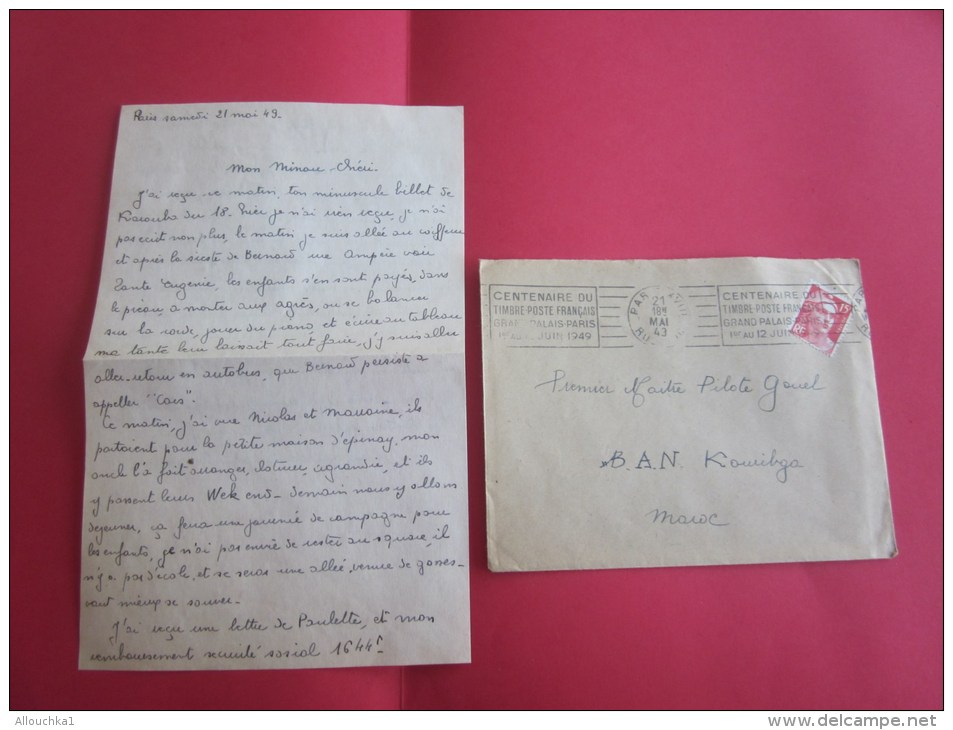 Paris samedi 21 mai 49.
Mon Minou Chéri.
J'ai reçu ce matin, ton minuscule billet de
Karouba du 18. Hier je n'ai rien reçu, je n'ai
pas écrit non plus, le matin je suis allée au coiffeur
et après la sieste de Bernard rue Ampère voir
Tante Eugénie, les enfants s'en sont payés, dans
le préau, a monter aux agrès, ou se balancer
sur la corde, jouer du piano, et écrire au tableau
ma tante leur laissait tout faire, j'y suis aller
aller-retour en autobus, que Bernard persiste a
appeller "Cars".
Ce matin, j'ai vue Nicolas et
partaient pour la petite maison d'épinay, mon
oncle l'a fait arranger, cloturer, agrandir, et ils
y passent leurs Wek end - demain nous y allons
déjeuner, ça fera une journée de campagne pour
les enfants, je n'ai pas envie de rester au square, il
n'y a pas d'école, et se serai une allée venue de gosses -
vaut mieux se sauver -
J'ai reçu une lettre de Paulette, et mon
remboursement sécurité sosial 1644f
CENTENAIRE DU
TIMBRE-POSTE FRANÇAIS
GRAND PALAIS-PARIS
1er AU JUIN 1949
PAR
21
18H
MAI
43
CENTENAIRE DU
TIMBRE-POSTE FRANÇAIS
GRAND PALAIS
1er AU 12 JUIN
15f
RF
Premier Maitre Pilote Gouel
B.A.N. Kouribga
Maroc
Allouchka1
www.delcampe.net